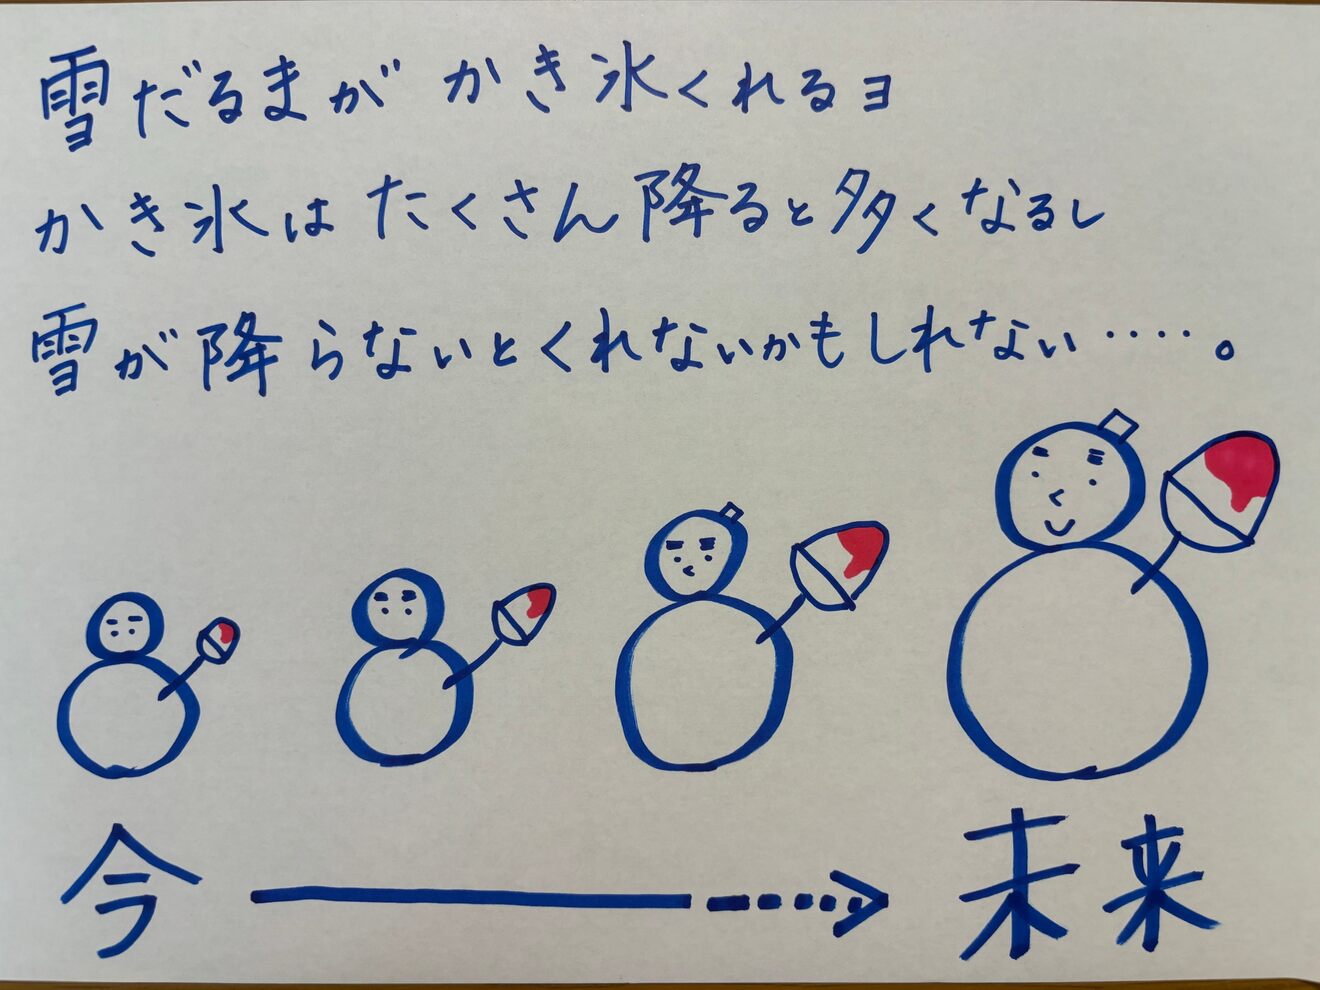 雪だるまが かき氷くれるヨ
かき氷は たくさん降ると多くなるし
雪が降らないとくれないかもしれない‥‥。
今 未来